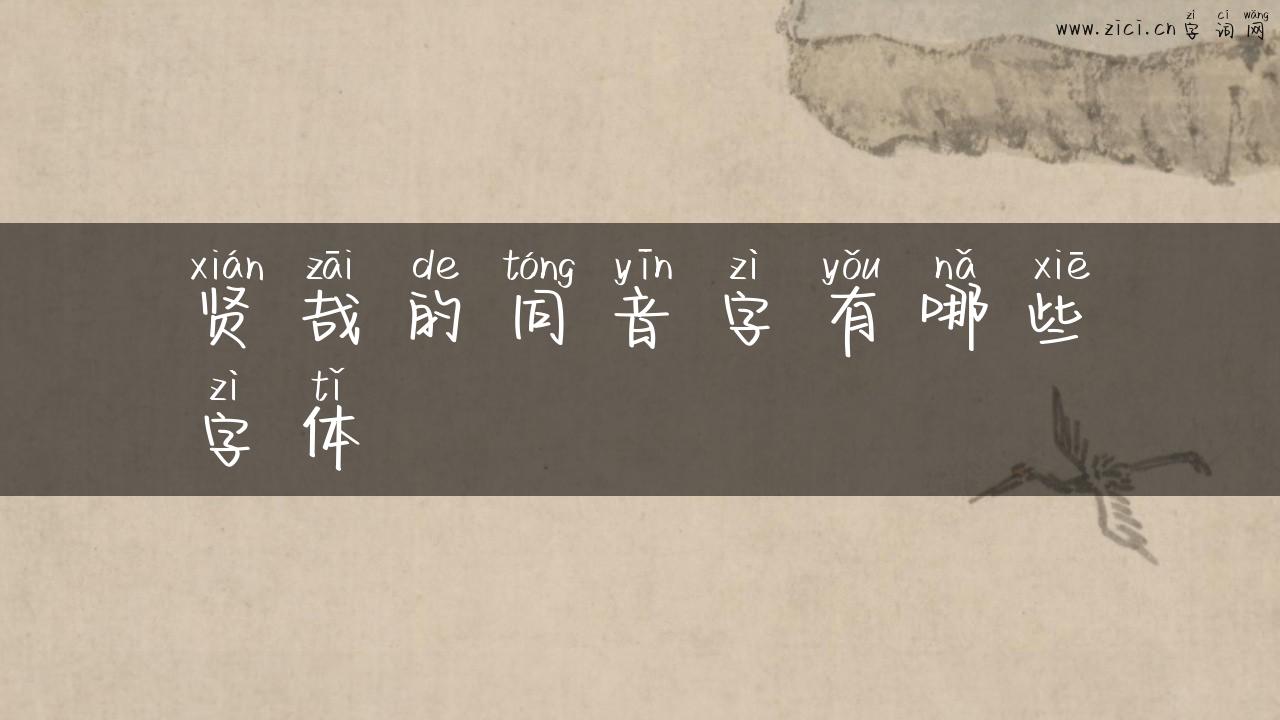 zì cí wǎng
www.zici.cn字词网
xián zāi de tóng yīn zì yǒu nǎ xiē
贤哉的同音字有哪些
zì tǐ
字体